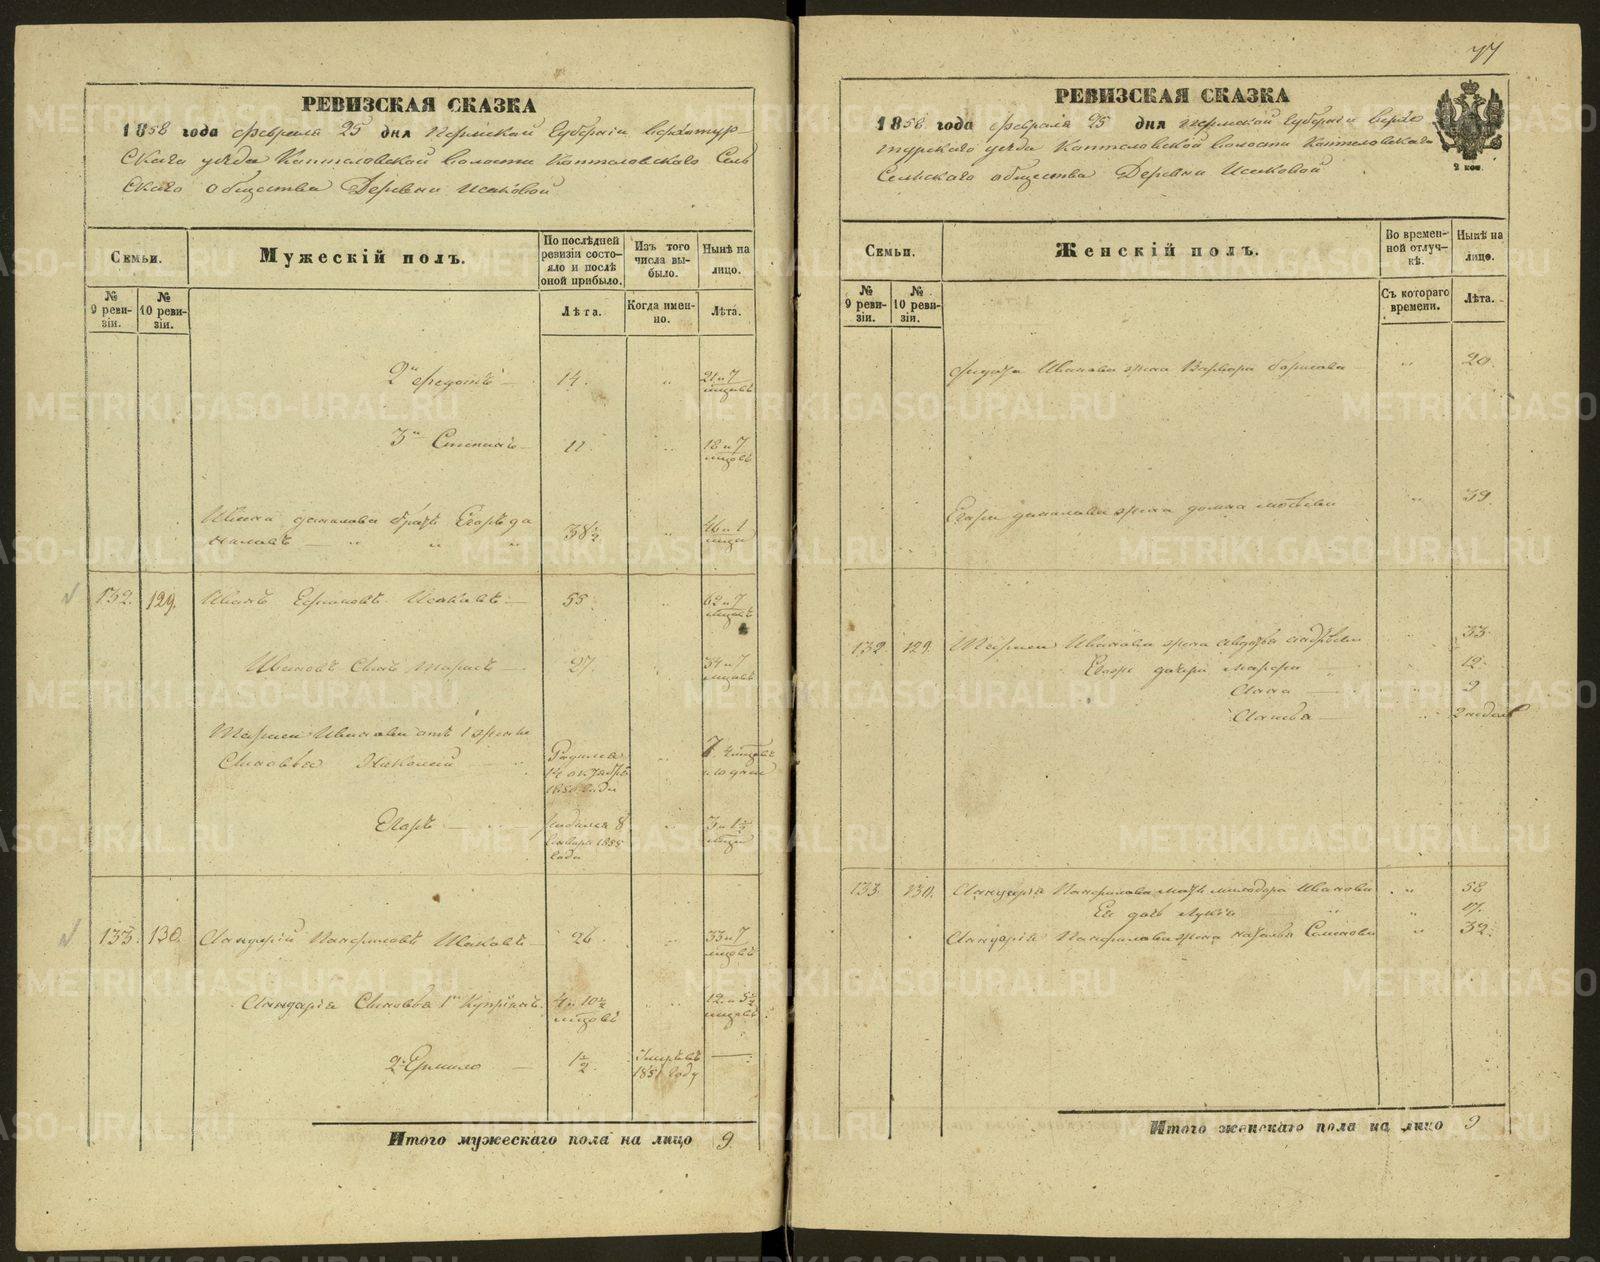 РЕВИЗСКАЯ СКАЗКА
1858 года февраля 25 дня Пермской Губернии Верхотур-
скаго уезда Коптеловской волости Коптеловского Сель
скаго общества Деревни Исаковой
Семьи.
Мужескій полъ.
По послѣдней ревизіи состояло и послѣ оной прибыло.
Изъ того числа выбыло.
Нынѣ на лицо.
№ 9 ревизіи.
№ 10 ревизіи.
Лѣта.
Когда именно.
Лѣта.
2й Федотъ 14. 21 и 7 мцовъ
3й Степанъ 11 18 и 7 мцовъ
Ивана Данилова братъ Егоръ Да
ниловъ 38½ 46 и 1 мца
132. 129. Иванъ Ефимовъ Исаковъ 55 62 и 7 мцовъ
Ивановъ Сынъ 27 34 и 7 мцовъ
Ивановы отъ 1 жены
Сыновья Николай Родился 14 октября 1850 года 7. 4 мцовъ 10 дней
Егоръ Родился 8 Января 1855 года 3 и 1½ мца
133. 130. Панфиловъ Исаковъ 26 33 и 7 мцовъ
Сыновья 1й 4 и 10½ мцовъ 12 и 5½ мцовъ
2й Ермило 1½ Умеръ въ 1851 году
Итого мужескаго пола на лицо 9.
77
РЕВИЗСКАЯ СКАЗКА
1858 года февраля 25 дня Пермской Губернии Верхо
турского уезда Коптеловской волости Коптеловскаго
Сельскаго общества Деревни Исаковой
2 коп.
Семьи.
Женскій полъ.
Во временной отлучкѣ.
Нынѣ на лицо.
№ 9 ревизіи.
№ 10 ревизіи.
Съ котораго времени.
Лѣта.
Федота Иванова жена Варвара Борисова 20.
Егора Данилова жена Домна 39.
132 129. Иванова жена Авдотья 33.
Егожъ дочери Марфа 12.
Анна 2
2 недѣль
133. 130. Панфилова мать Иванова 58
Ея дочь 17.
Панфилова жена Наталья Семенова 32.
Итого женскаго пола на лицо 9
METRIKI.GASO-URAL.RU